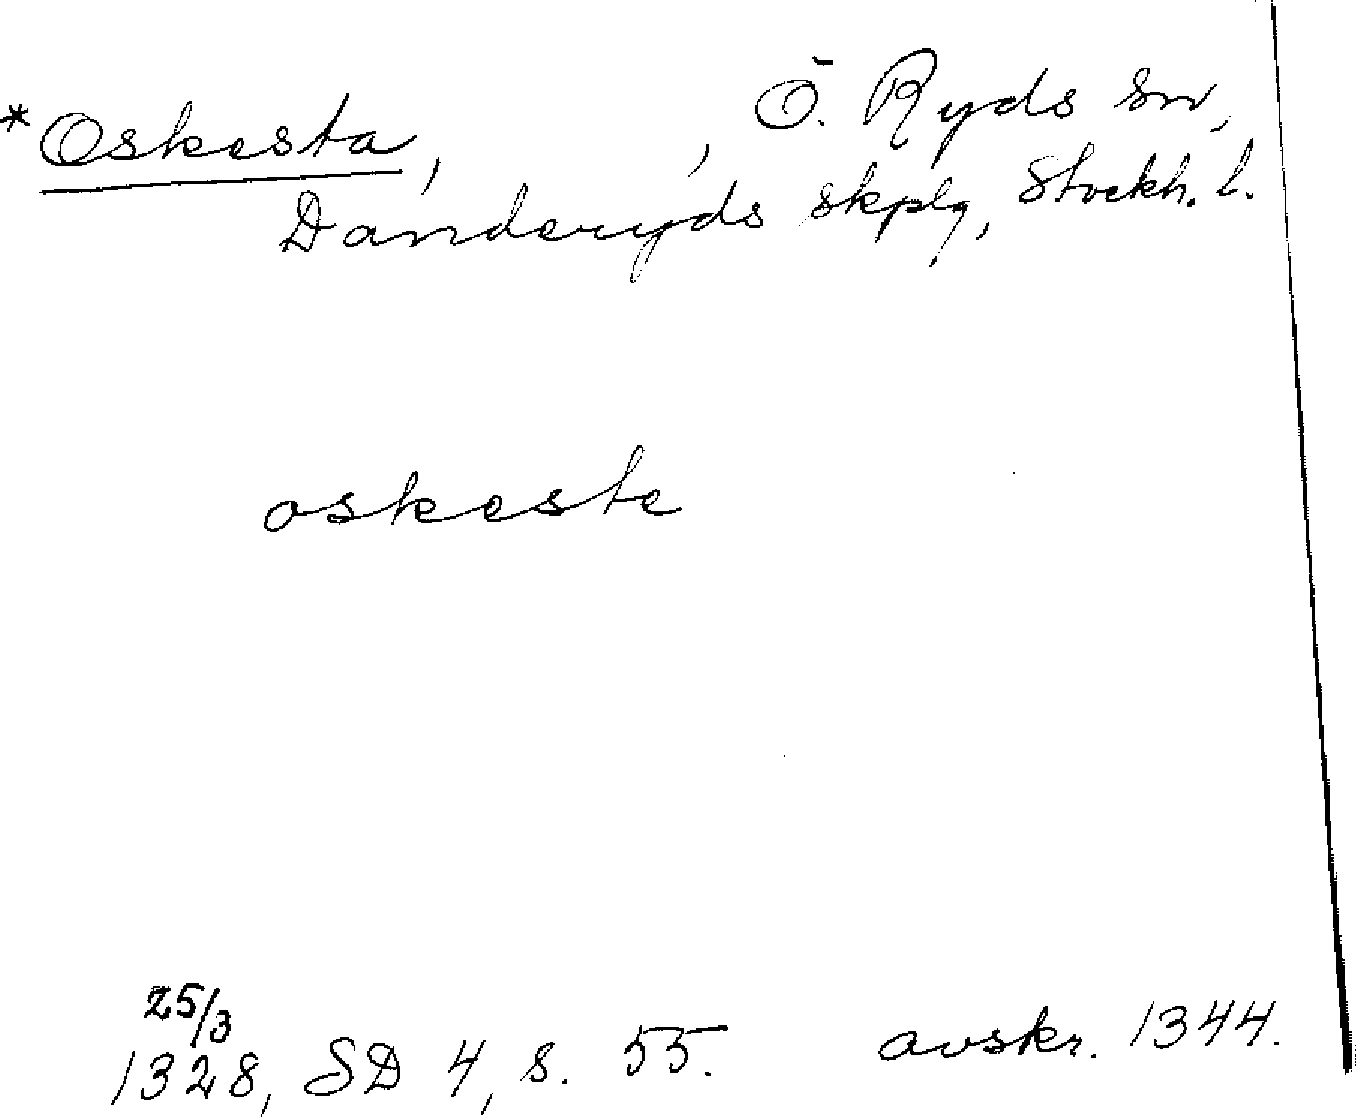 *Oskesta, , Ö. Ryds sn,
Danderyds skplg, Stockh. l.
oskeste
25/3
1328, SD 4, s. 55. avskr. 1344.